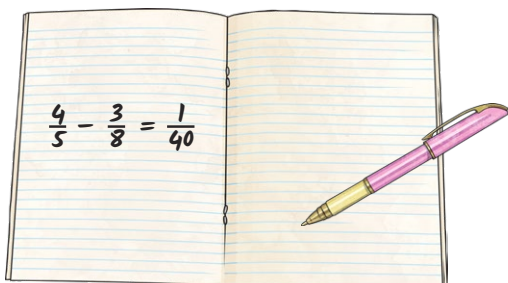 4/5 − 3/8 = 1/40